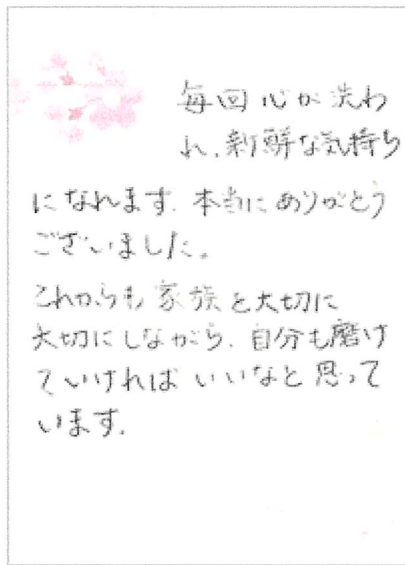 毎回心が洗わ
れ、新鮮な気持ち
になれます。本当にありがとう
ございました。
これからも家族と大切に
大切にしながら、自分も磨け
ていければいいなと思って
います。